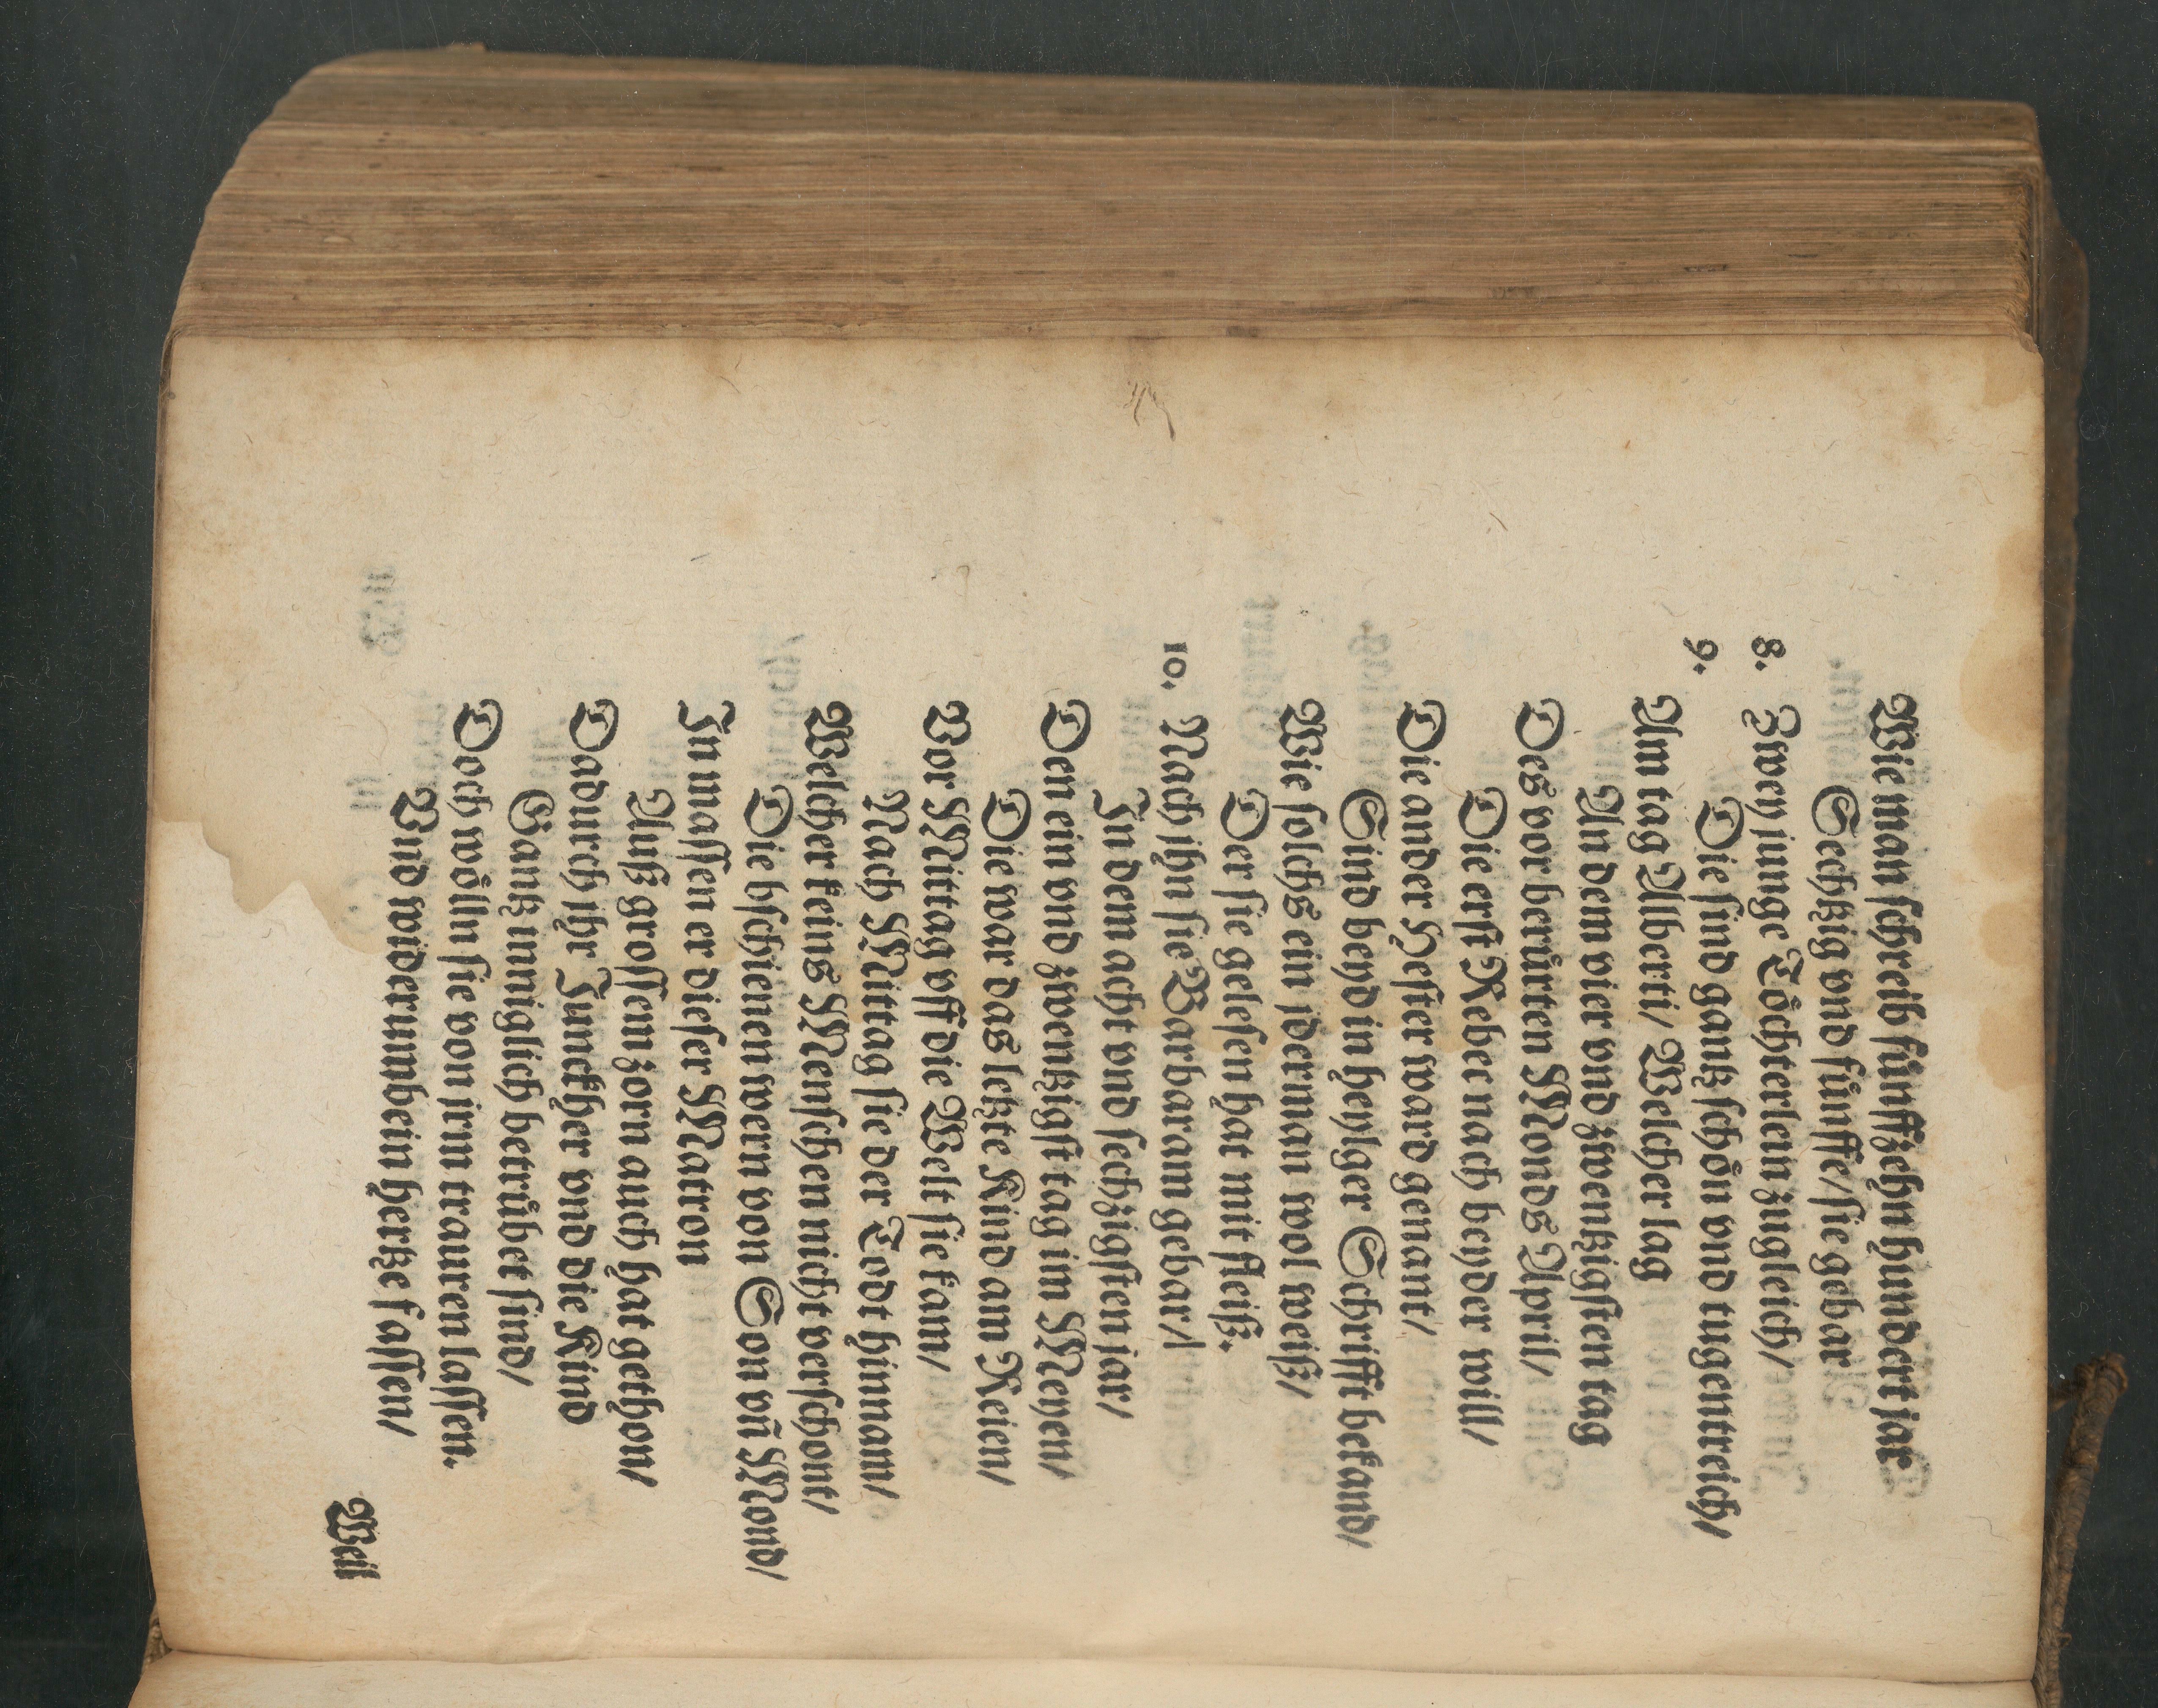 Wie man schreib fünffzehn hundert jar
Sechtzig vnd fünffe/ sie gebar
8. Zwey junge Töchterlein zugleich/
9. Die sind gantz schön vnd tugentreich/
Am tag Alberti/ Welcher lag
An dem vier vnd zwentzigsten tag
Des vor berürten Monds April/
Die erst Rebec nach beyder will/
Die ander Hester ward genant/
Sind beyd in heylger Schrifft bekand/
Wie solchs ein jderman wol weiß/
Der sie gelesen hat mit fleiß.
10. Nach jhn sie Barbaram gebar/
In dem acht vnd sechzigsten jar/
Den ein vnd zwentzigst tag im Meyen/
Die war das letzte Kind am Reien/
Vor Mittag vff die Welt sie kam/
Nach Mittag sie der Todt hinnam/
Welcher keins Menschen nicht verschont/
Die bschienen wern von Son vñ Mond/
In massen er dieser Matron
Auß grossem zorn auch hat gethon/
Dadurch jhr Junckher vnd die Kind
Gantz innigklich betrübet sind/
Doch wölln sie von jrm trauren lassen.
Vnd widerumb ein hertze fassen/
Weil